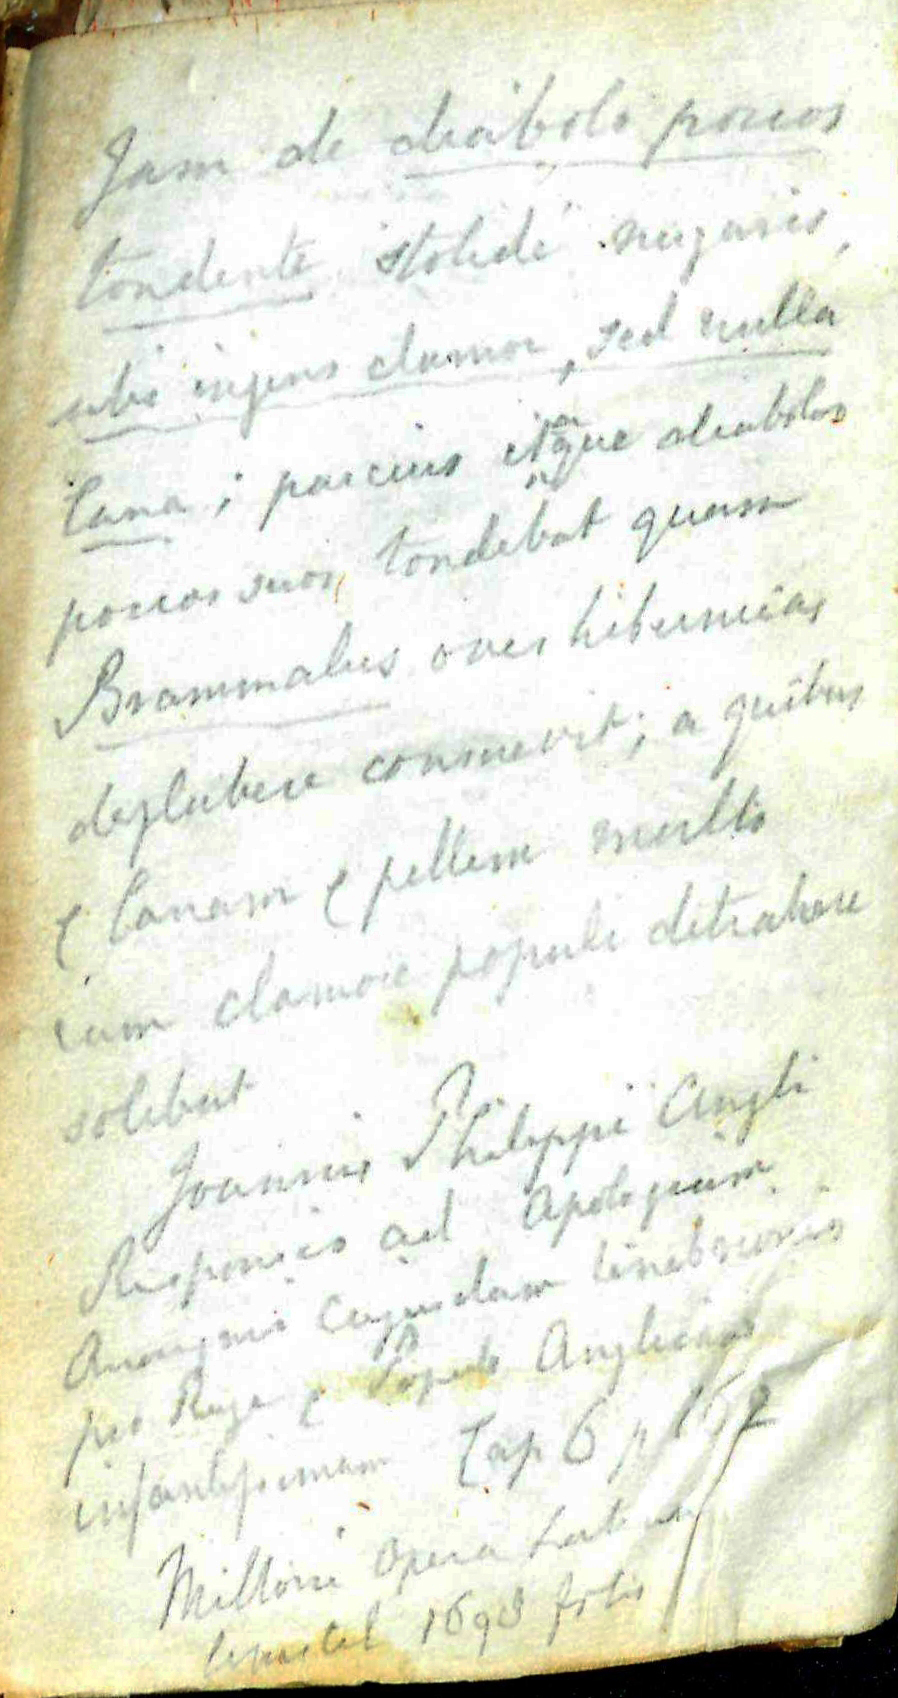 Jam de diabolo porcos
tondente stolidé nugaris,
ubi ingens clamor, sed nulla
lana; parcius itaque diabolus
porcos suos tondebat quam
Brammalus oves hibernicas
deglubere consuevit; a quibus
& lanam & pellem multo
cum clamore populi detrahere
solebat
Joannis Philippi Angli
Responsio ad Apologiam
Anonymi cujusdam tenebrionis
pro Rege & Populo Anglicano
infantissimam Cap 6 p
Miltoni Opera
1698 folio